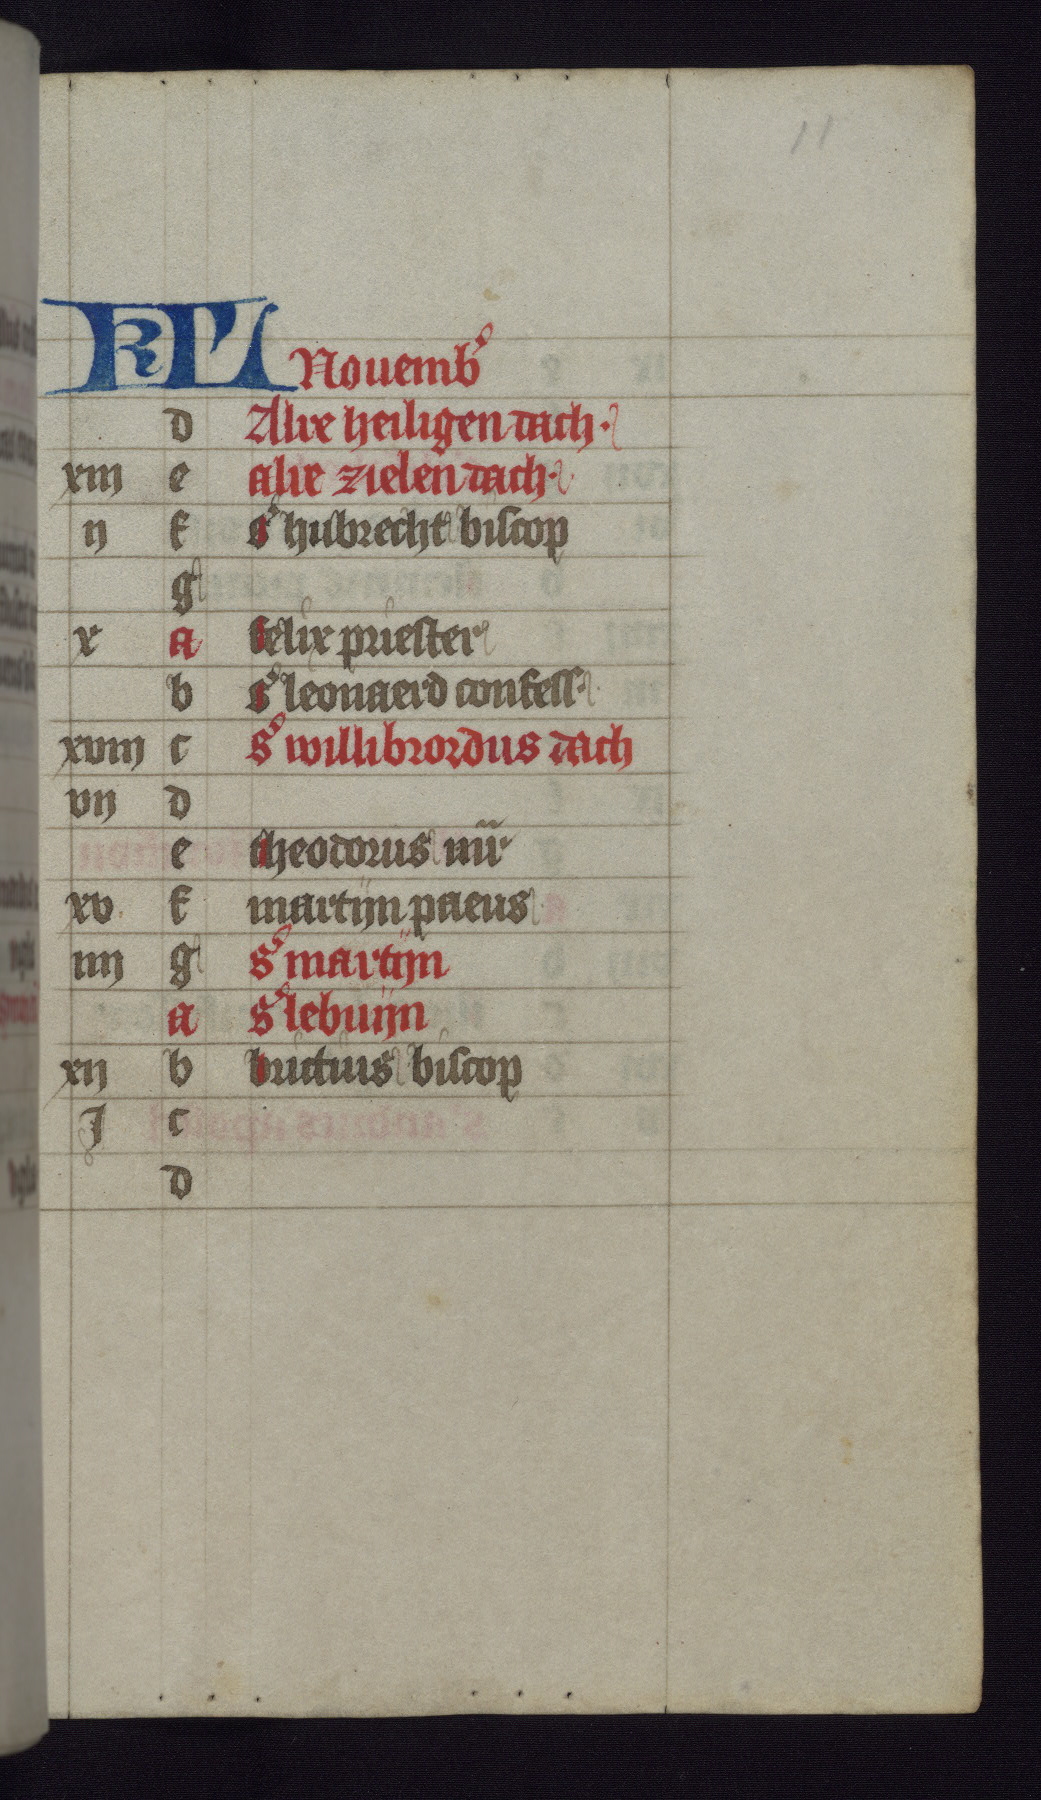 11
KL Nouemb
d Alre heiligen dach
xiii e alre zielen dach
ij f s hubrecht biscop
g
x a felix priester
b s leonaerd confess
xviii c s willibrordus dach
vij d
e theodorus m̄r
xv f martijn paeus
iiij g s martijn
a s lebuijn
xij b brictius biscop
j c
d